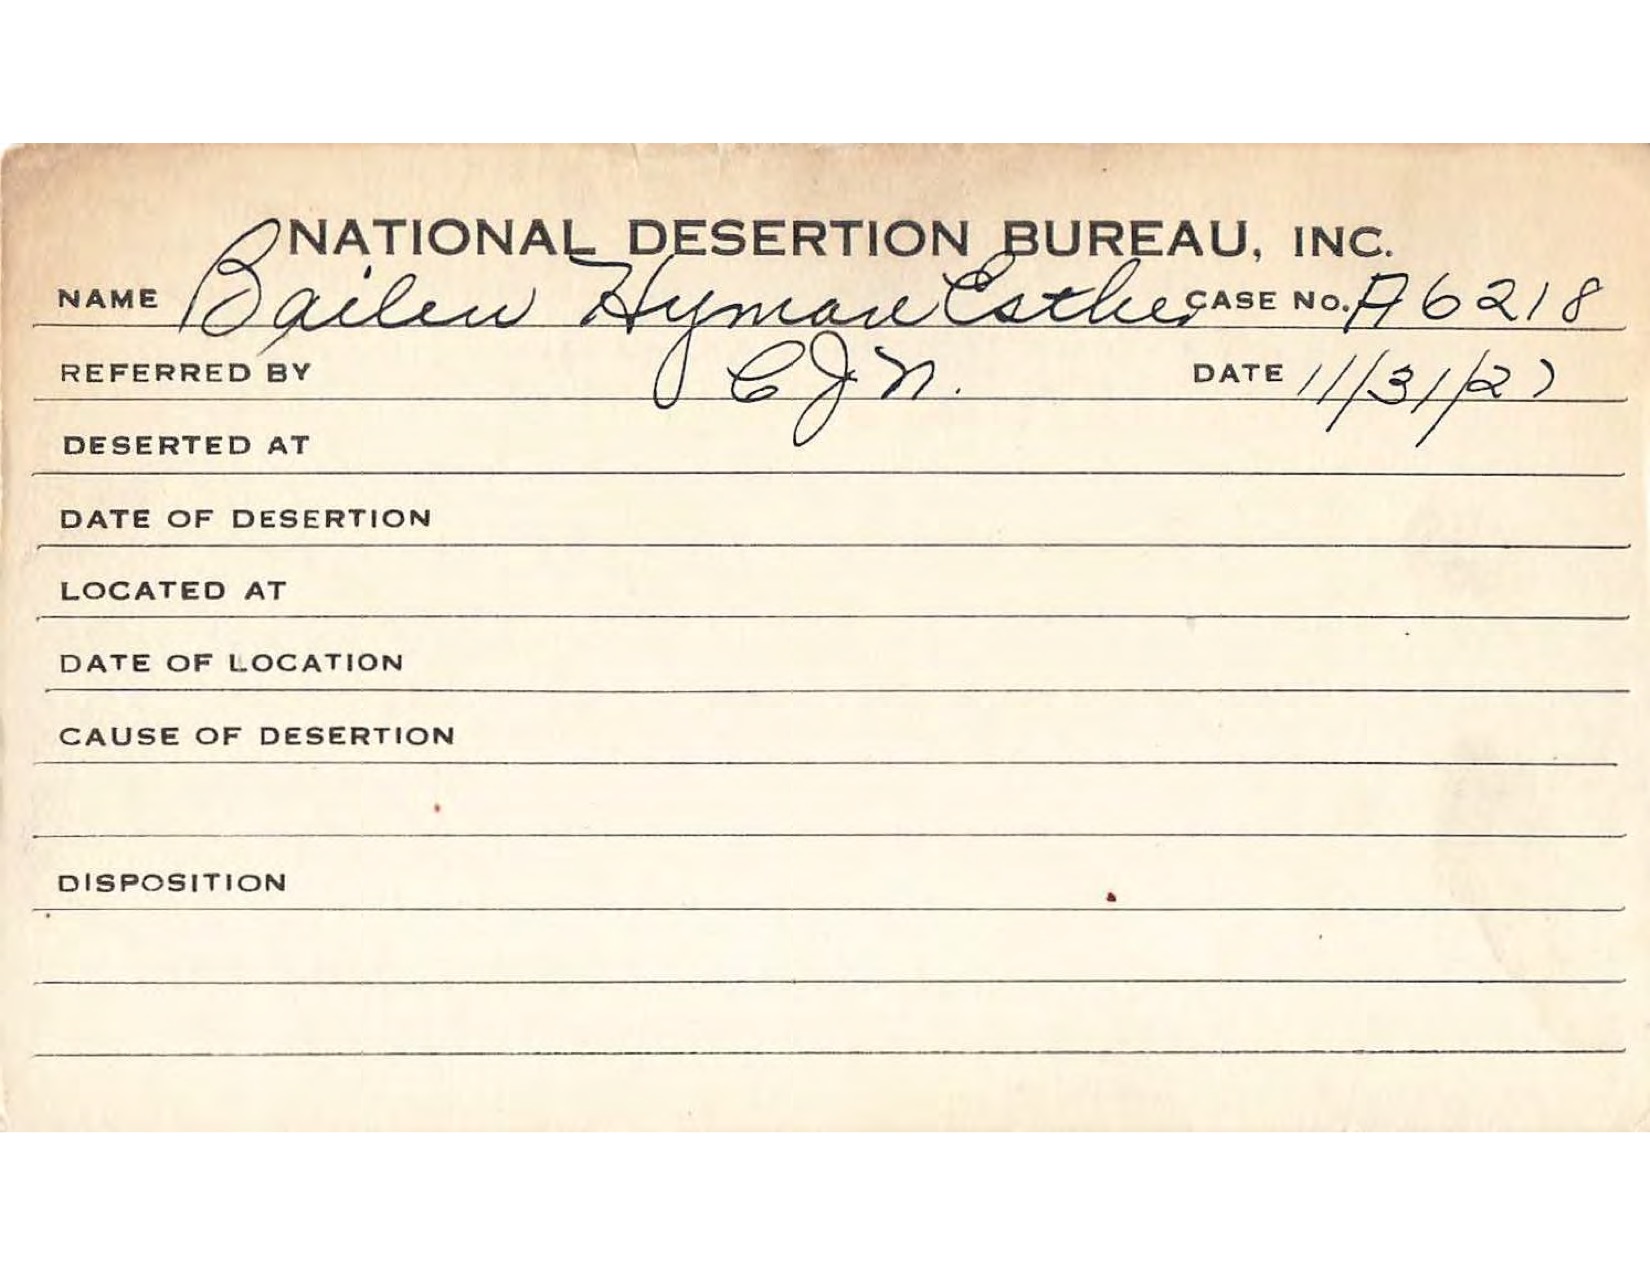 NATIONAL DESERTION BUREAU, INC.
NAME Bailen Hyman Esther CASE No. A6218
REFERRED BY C J N. DATE 11/31/27
DESERTED AT
DATE OF DESERTION
LOCATED AT
DATE OF LOCATION
CAUSE OF DESERTION
DISPOSITION